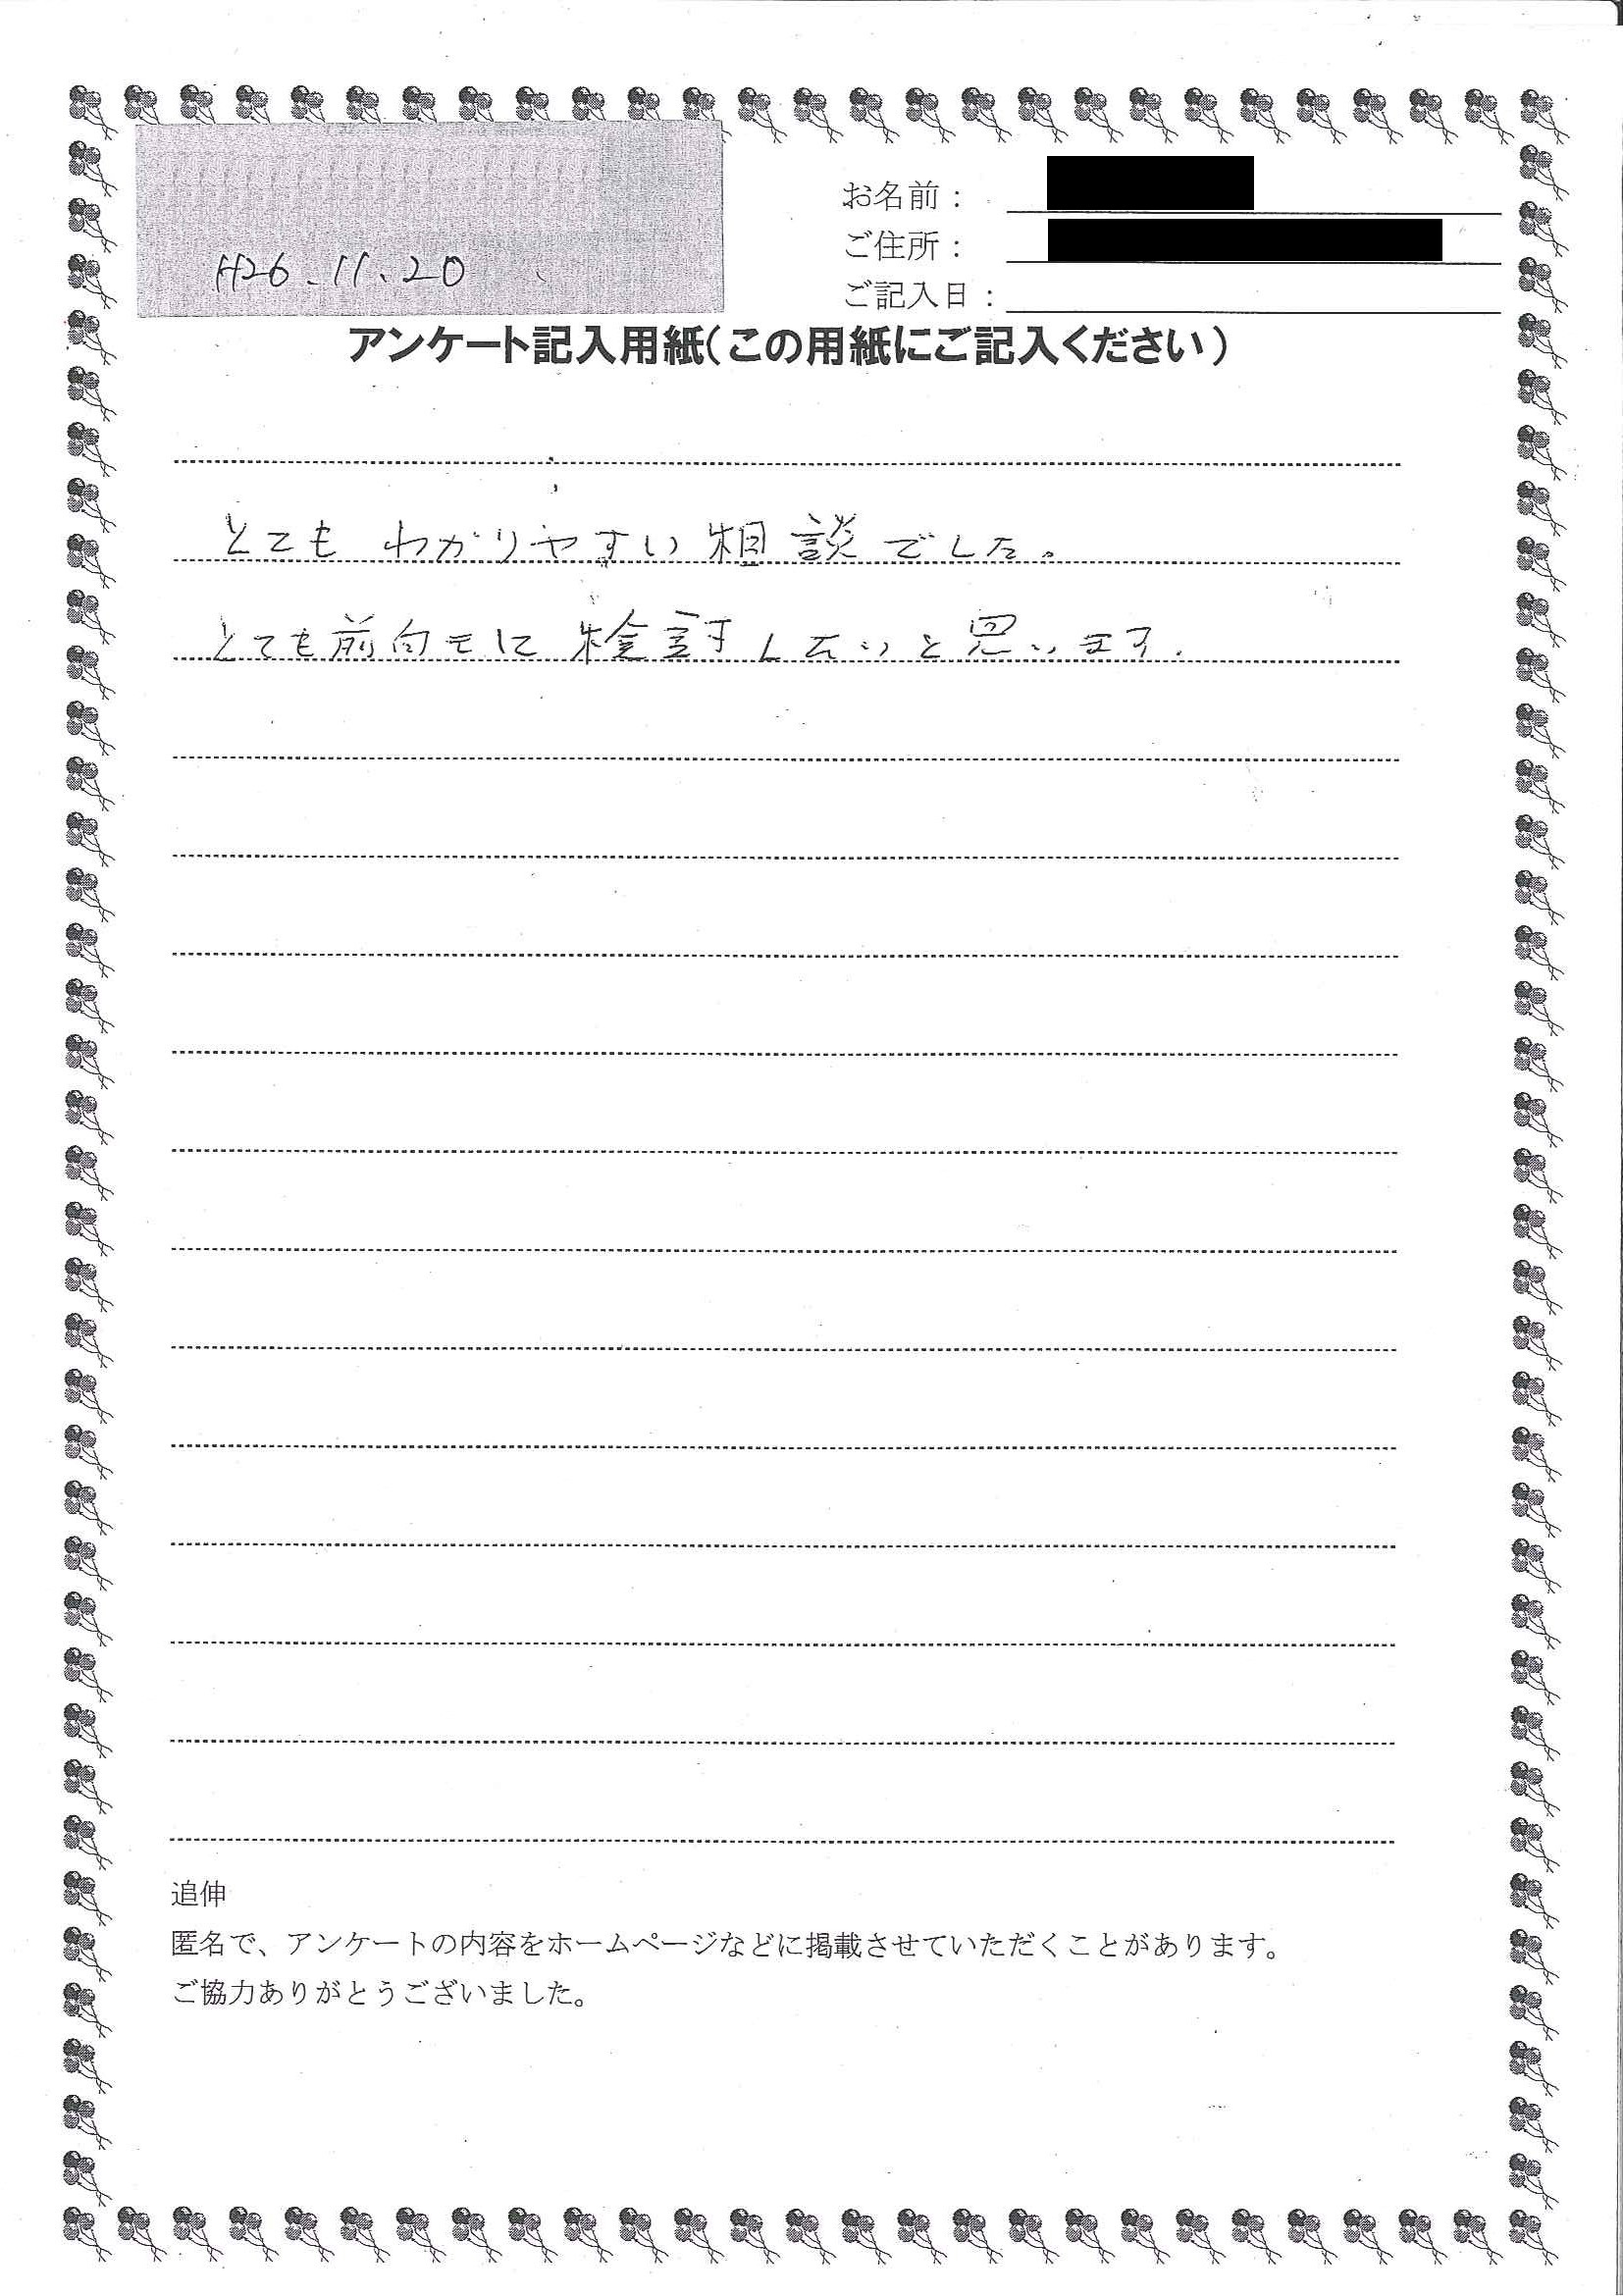 H26.11.20
お名前：
ご住所：
ご記入日：
アンケート記入用紙（この用紙にご記入ください）
とても わかりやすい 相談でした。
とても前向きに 検討したいと思います.
追伸
匿名で、アンケートの内容をホームページなどに掲載させていただくことがあります。
ご協力ありがとうございました。